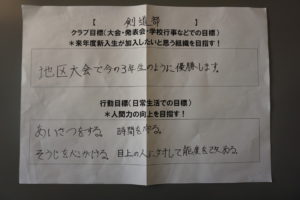 【 剣道部 】
クラブ目標(大会・発表会・学校行事などでの目標)
*来年度新入生が加入したいと思う組織を目指す!
地区大会で今の3年生のように優勝します。
行動目標(日常生活での目標)
*人間力の向上を目指す!
あいさつをする。 時間を守る。
そうじを心がける。 目上の人に対して態度を改める。